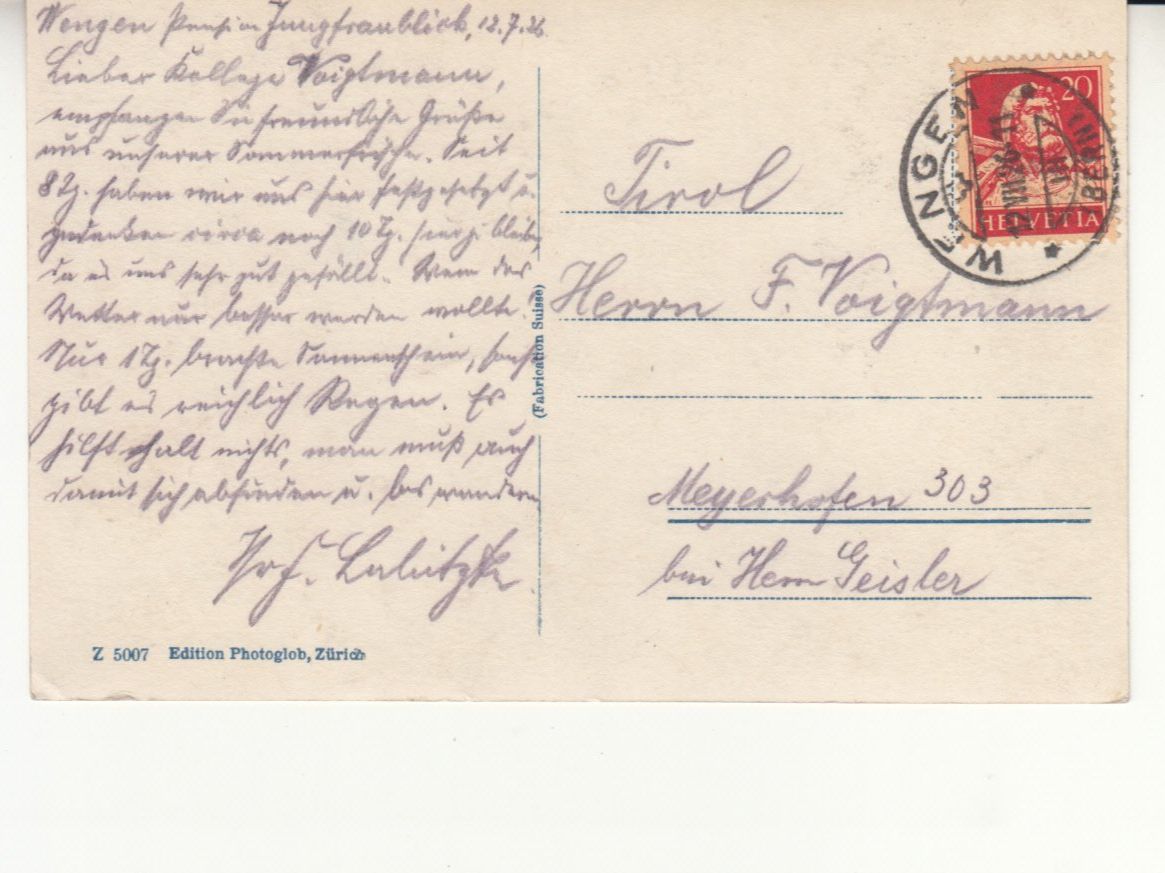 Wengen Pension Jungfraublick, 12.7.26.
Lieber Kollege Voigtmann,
empfangen Sie freundliche Grüße
aus unserer Sommerfrische. Seit
8 Tg. haben wir uns hier festgesetzt u.
gedenken circa noch 10 Tg. hier z. bleiben
da es uns sehr gut gefällt. Wenn das
Wetter nur besser werden wollte.
Nur 1 Tg. brachte Sonnenschein, sonst
gibt es reichlich Regen. Es
hilft halt nichts, man muß auch
damit sich abfinden u. los wandern.
Prof.
Z 5007 Edition Photoglob, Zürich
(Fabrication Suisse)
20
HELVETIA
WENGEN
12.VII.26-11
(BERN)
Tirol
Herrn F. Voigtmann
Meyerhofen 303
bei Herrn Geisler